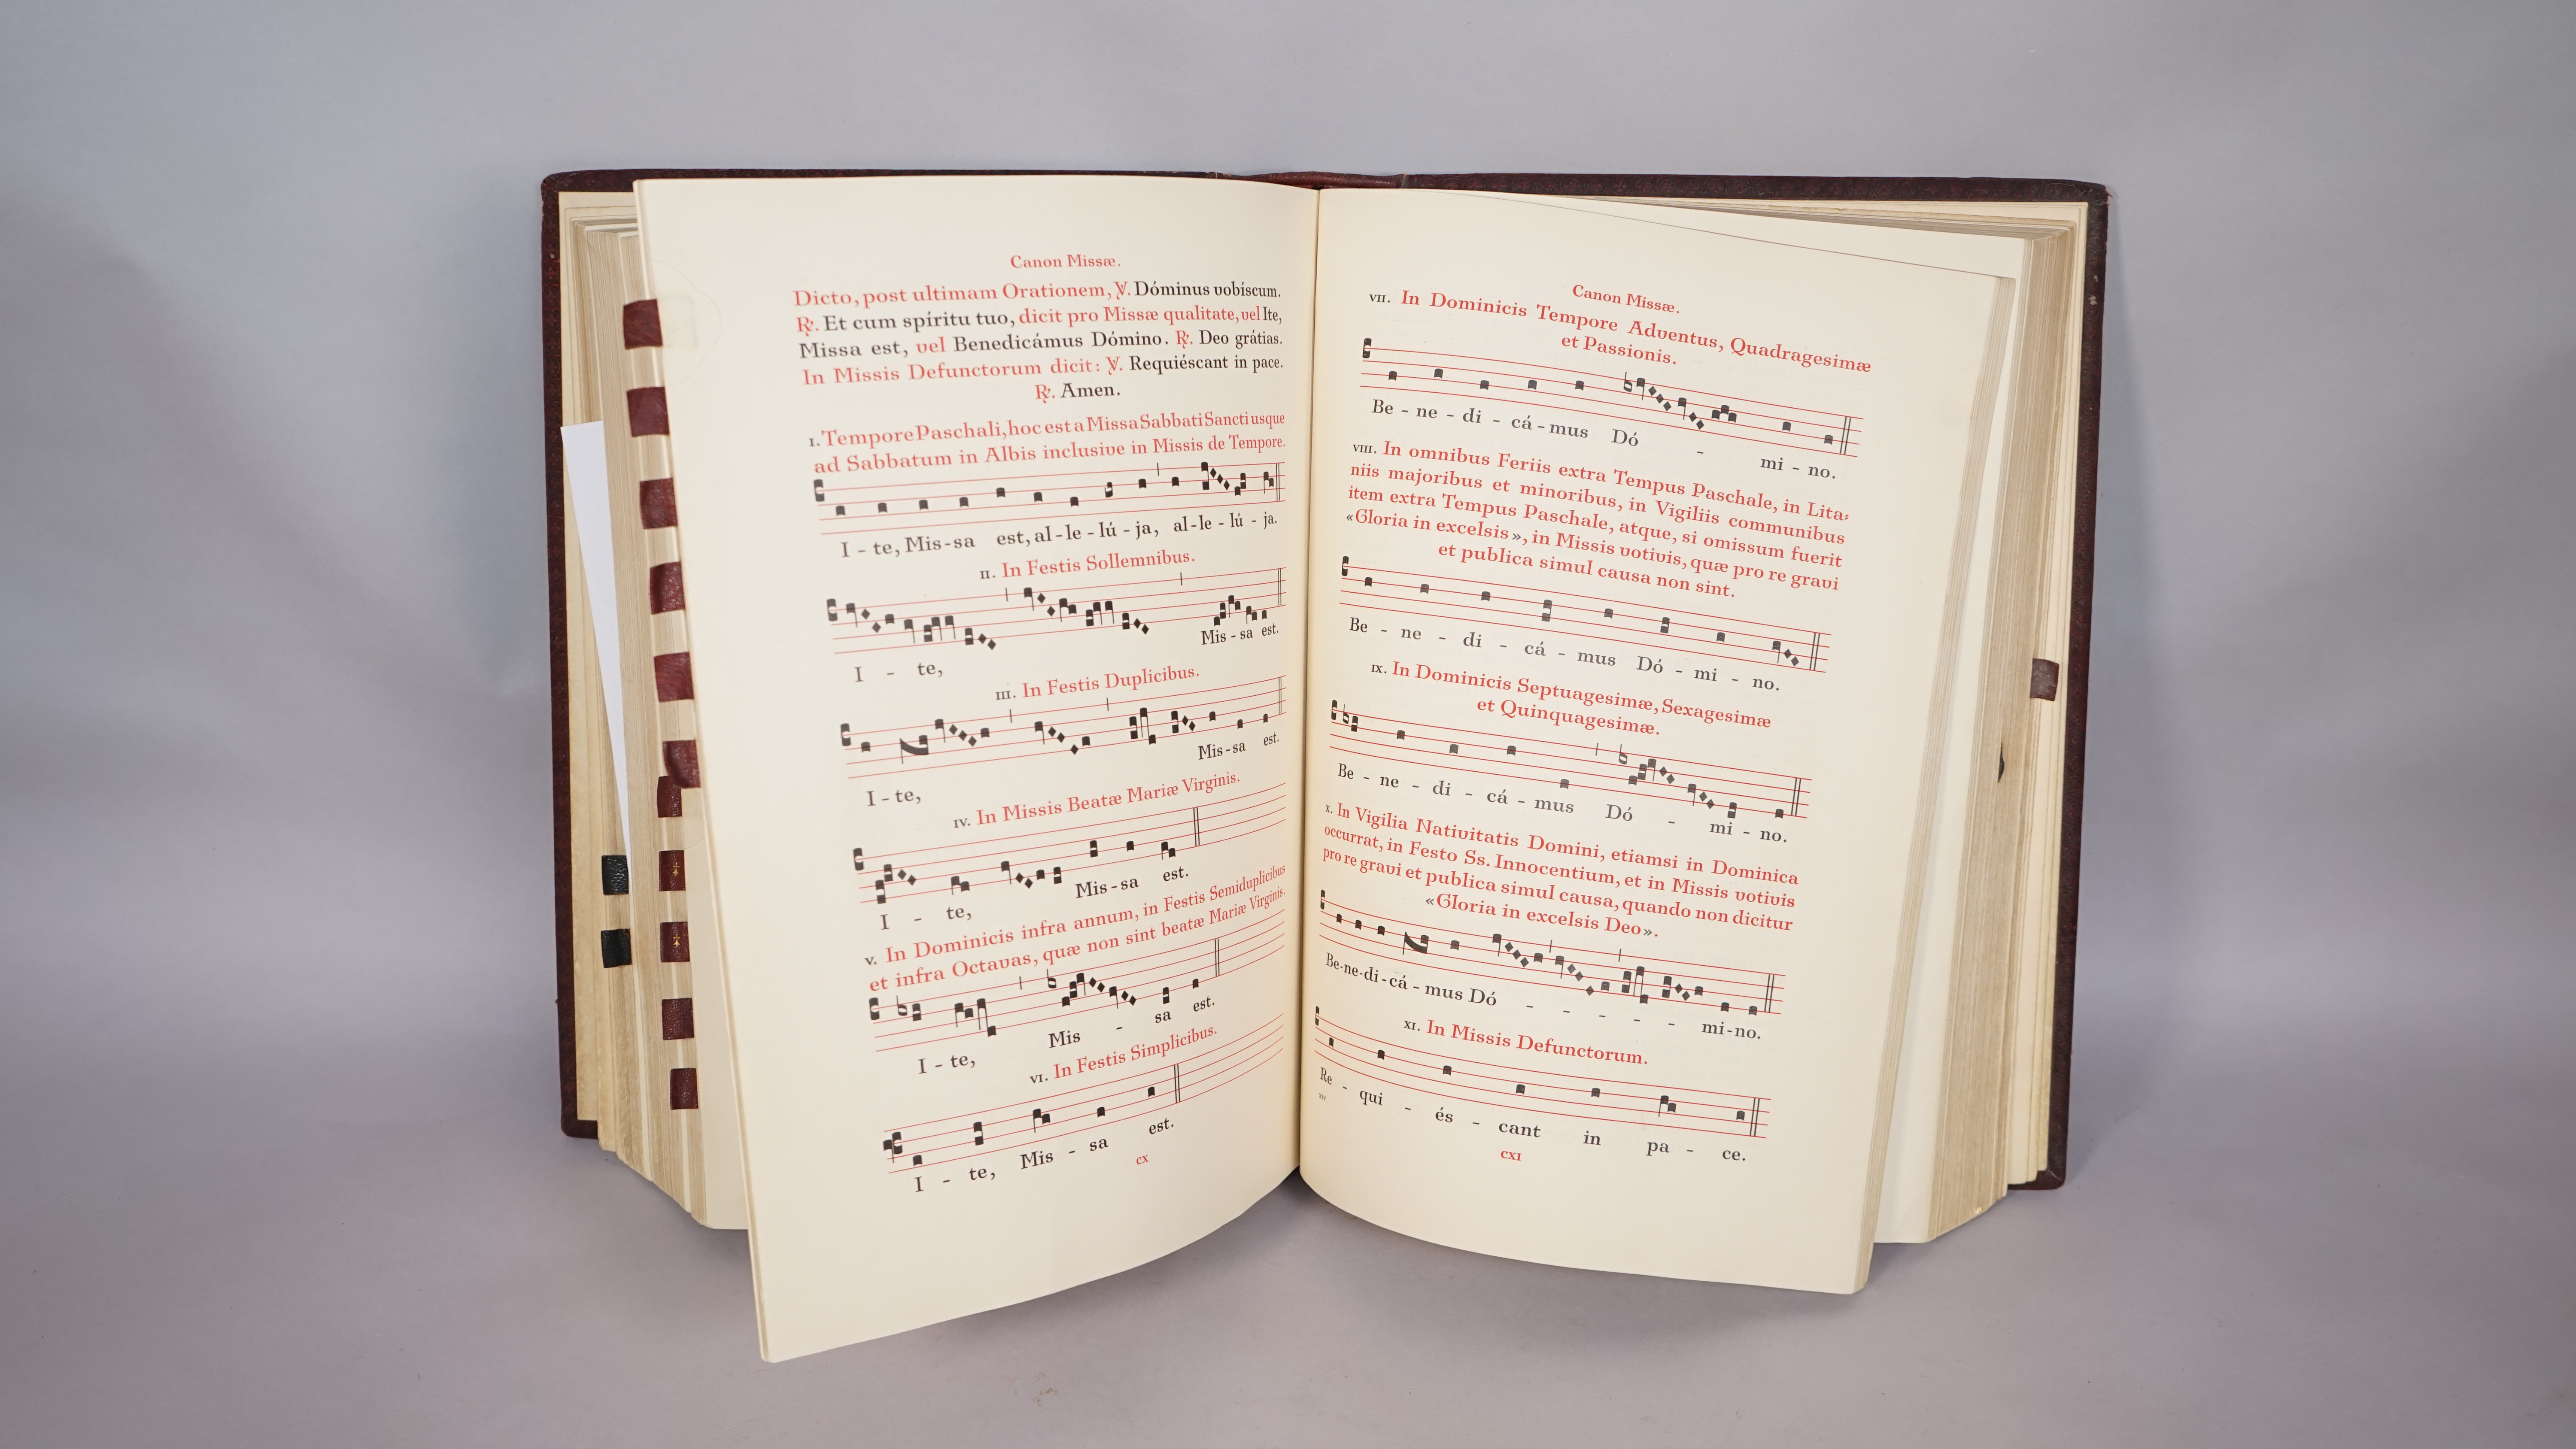 Canon Missæ.
Dicto, post ultimam Orationem, ℣. Dóminus vobíscum.
℟. Et cum spíritu tuo, dicit pro Missæ qualitate, vel Ite,
Missa est, vel Benedicámus Dómino. ℟. Deo grátias.
In Missis Defunctorum dicit: ℣. Requiéscant in pace.
℟. Amen.
I. Tempore Paschali, hoc est a Missa Sabbati Sancti usque
ad Sabbatum in Albis inclusive in Missis de Tempore.
I - te, Mis - sa est, al - le - lú - ja, al - le - lú - ja.
II. In Festis Sollemnibus.
I - te, Mis - sa est.
III. In Festis Duplicibus.
I - te, Mis - sa est.
IV. In Missis Beatæ Mariæ Virginis.
I - te, Mis - sa est.
V. In Dominicis infra annum, in Festis Semiduplicibus
et infra Octavas, quæ non sint beatæ Mariæ Virginis.
I - te, Mis - sa est.
VI. In Festis Simplicibus.
I - te, Mis - sa est.
CX
Canon Missæ.
VII. In Dominicis Tempore Adventus, Quadragesimæ
et Passionis.
Be - ne - di - cá - mus Dó - mi - no.
VIII. In omnibus Feriis extra Tempus Paschale, in Lita-
niis majoribus et minoribus, in Vigiliis communibus
item extra Tempus Paschale, atque, si omissum fuerit
«Gloria in excelsis», in Missis votivis, quæ pro re gravi
et publica simul causa non sint.
Be - ne - di - cá - mus Dó - mi - no.
IX. In Dominicis Septuagesimæ, Sexagesimæ
et Quinquagesimæ.
Be - ne - di - cá - mus Dó - mi - no.
X. In Vigilia Nativitatis Domini, etiamsi in Dominica
occurrat, in Festo Ss. Innocentium, et in Missis votivis
pro re gravi et publica simul causa, quando non dicitur
«Gloria in excelsis Deo».
Be - ne - di - cá - mus Dó - - - - - mi - no.
XI. In Missis Defunctorum.
Re - qui - és - cant in pa - ce.
CXI